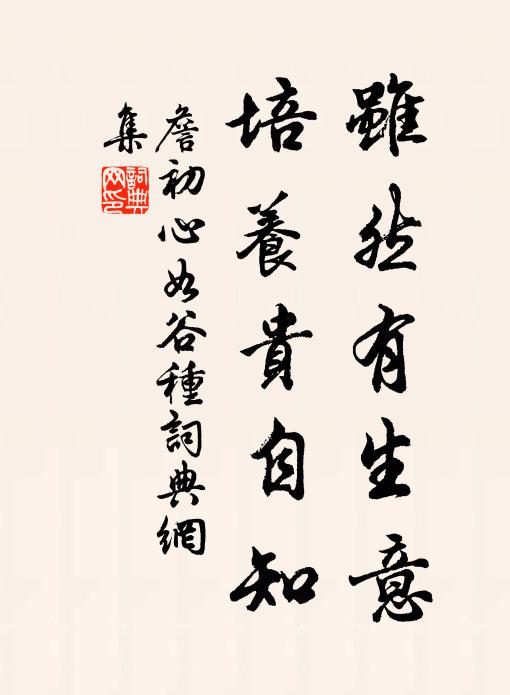 雖然有生意
培養貴自知
詹初心如谷種詞典網
集
詞典
网印